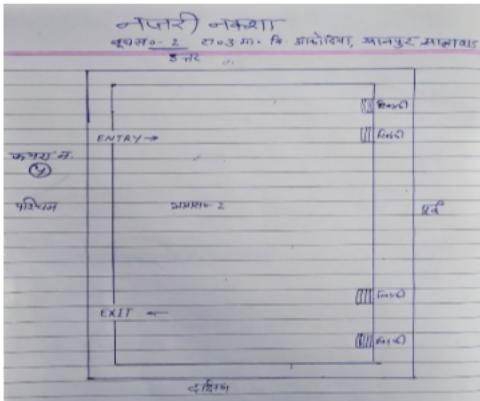 नजरी नक्शा
बूथस०-2 रा०उ०मा० वि आकोदिया, खानपुर झालावाड
उत्तर
खिडकी
ENTRY → खिडकी
कमरा न.
4
पश्चिम भागस०-2 पूर्व
खिडकी
EXIT ←
खिडकी
दक्षिण